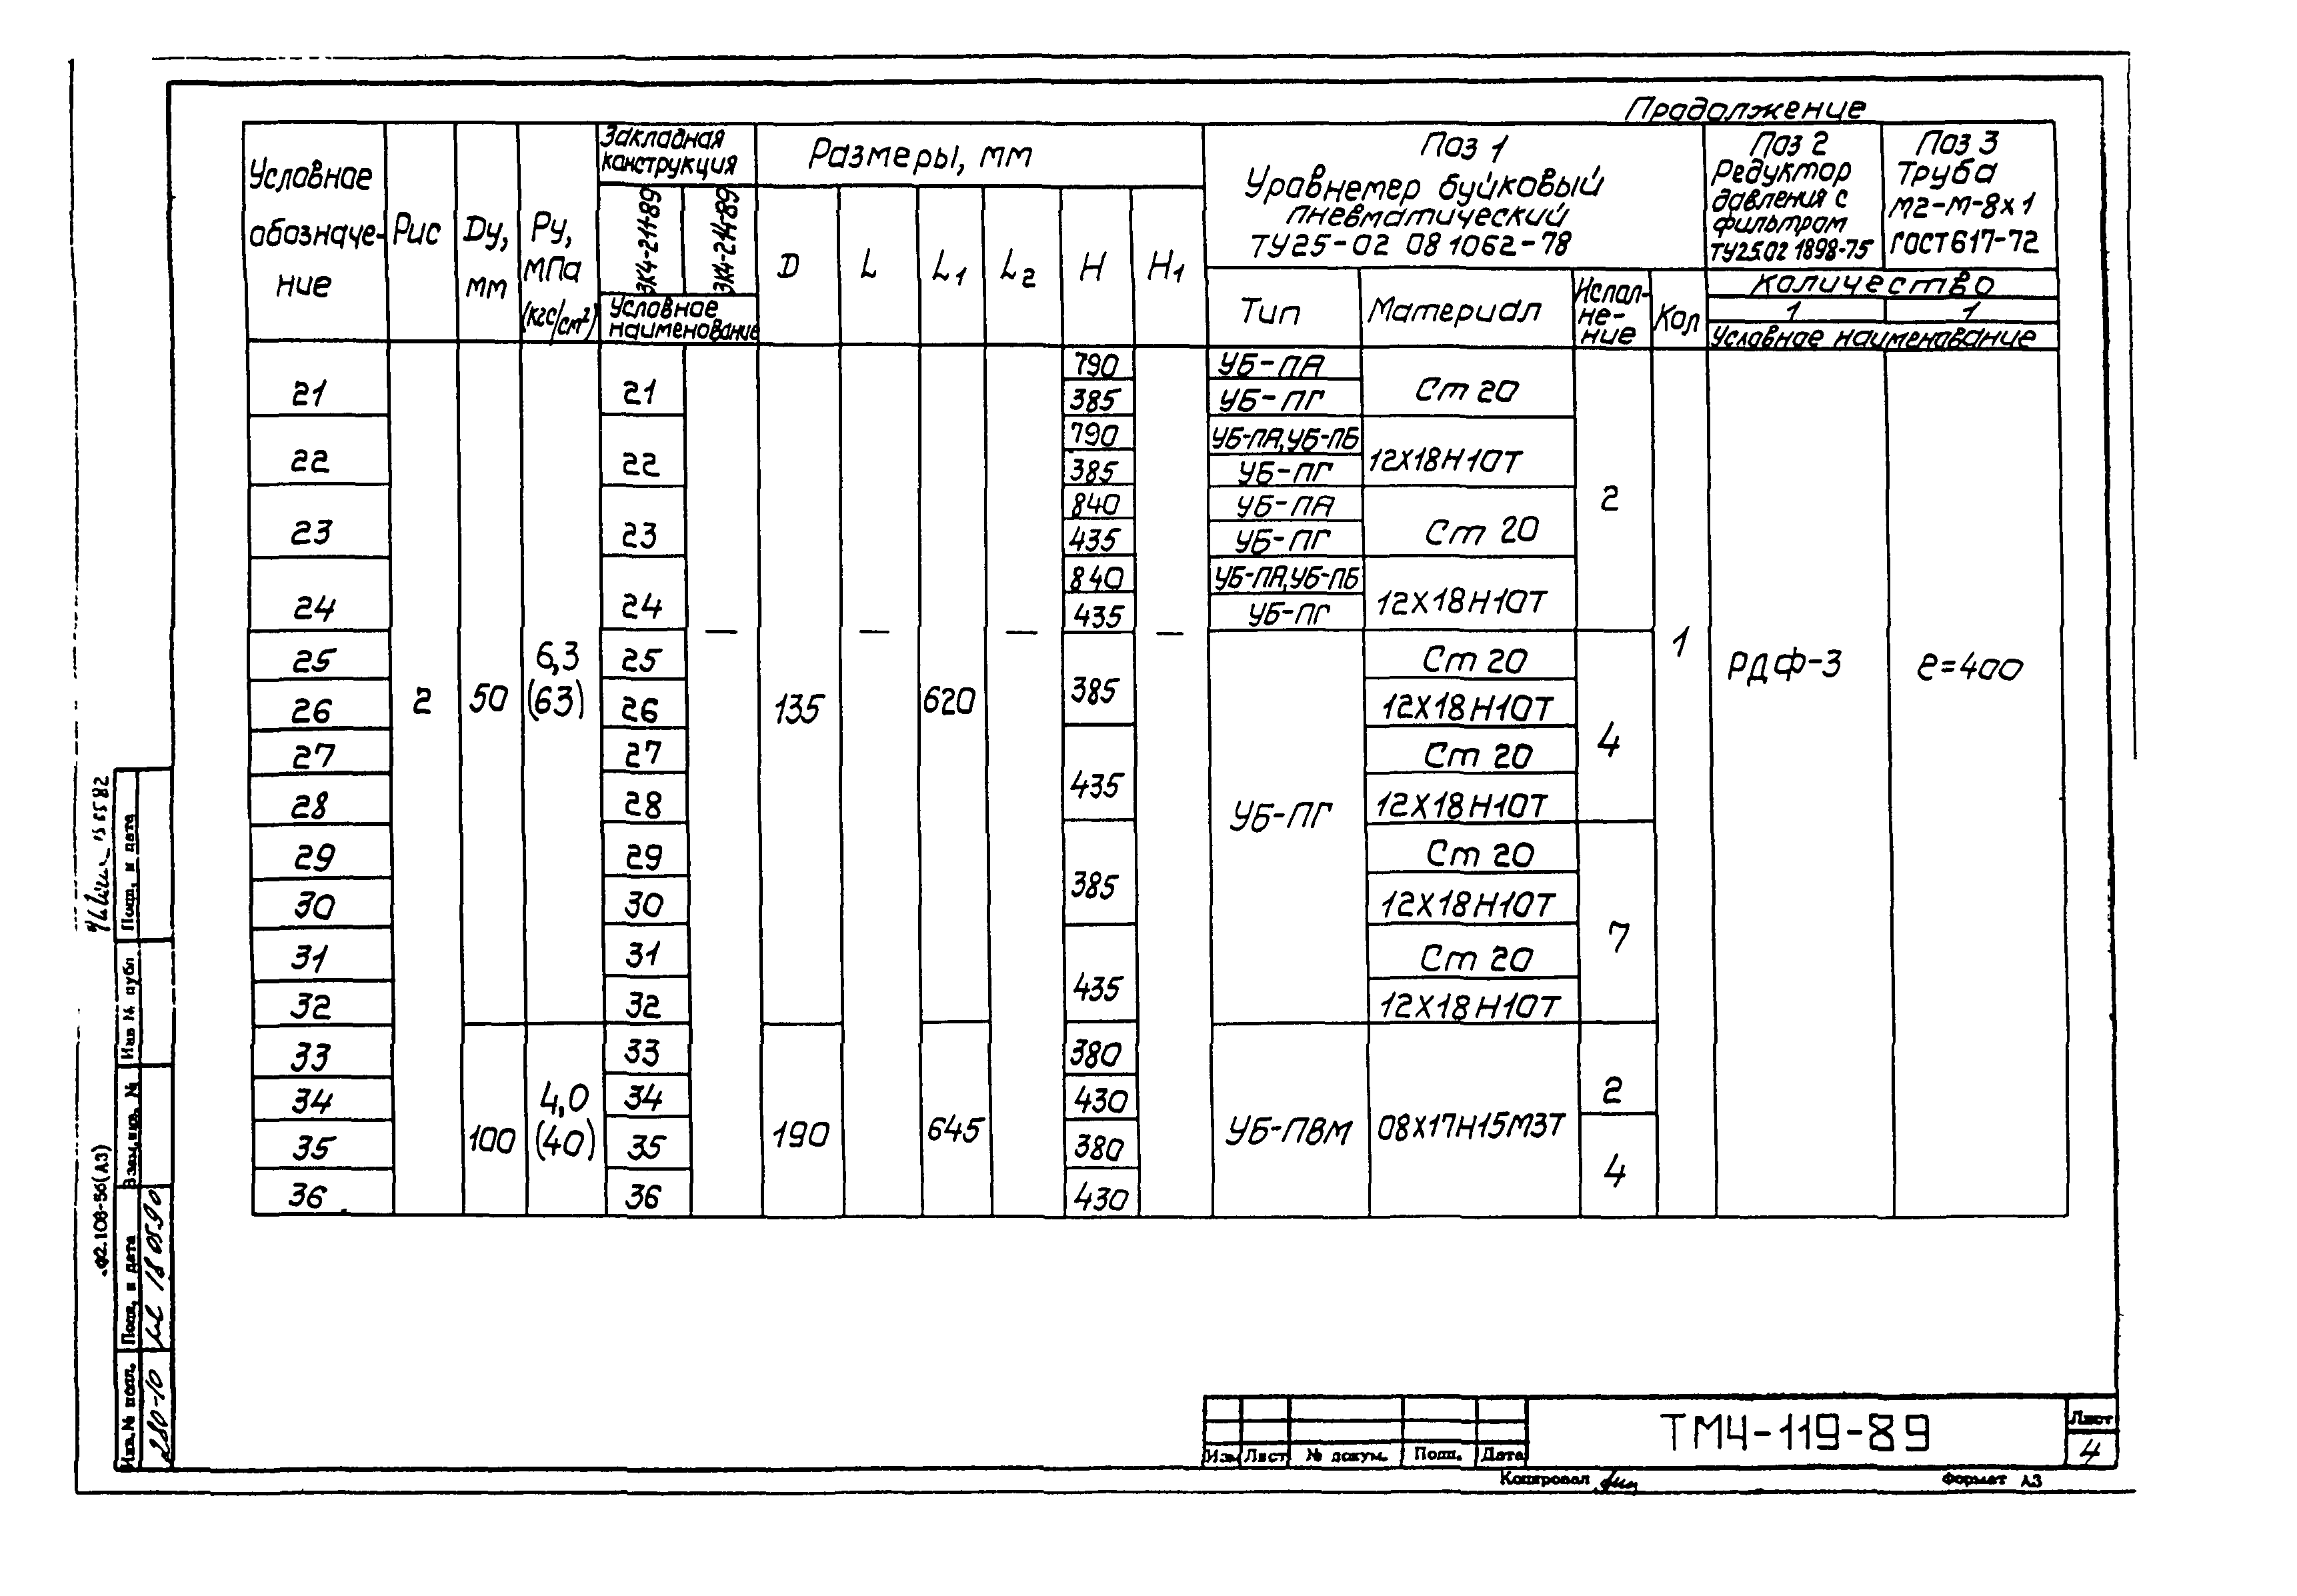 Продолжение
Условное
обозначе-
ние
Рис
Dу,
мм
Ру,
МПа
(кгс/см²)
Закладная
конструкция
ЗК4-211-89
ЗК4-214-89
Условное
наименование
Размеры, мм
D
L
L1
L2
H
H1
Поз 1
Уровнемер буйковый
пневматический
ТУ25-02 08 1062-78
Тип
Материал
Испол-
не-
ние
Кол
Поз 2
Редуктор
давления с
фильтром
ТУ25.02 1898-75
Поз 3
Труба
М2-М-8х1
ГОСТ617-72
Количество
1 1
Условное наименование
21 21 790 УБ-ПА Ст 20
385 УБ-ПГ
22 22 790 УБ-ПА,УБ-ПБ 12Х18Н10Т
385 УБ-ПГ
2
23 23 840 УБ-ПА Ст 20
435 УБ-ПГ
24 24 840 УБ-ПА,УБ-ПБ 12Х18Н10Т
435 УБ-ПГ
— — — —
25 6,3 25 Ст 20 1 РДФ-3 ℓ=400
26 2 50 (63) 26 135 620 385 12Х18Н10Т
27 27 Ст 20 4
28 28 435 УБ-ПГ 12Х18Н10Т
29 29 Ст 20
30 30 385 12Х18Н10Т
31 31 Ст 20 7
32 32 435 12Х18Н10Т
33 33 380
34 4,0 34 430 2
35 100 (40) 35 190 645 380 УБ-ПВМ 08Х17Н15М3Т
36 36 430 4
Подп. и дата
Инв № публ
Взам.инв. №
Подп. и дата
18 05.90
Инв.№ подл.
280-10
Ф2.108-5б(А3)
Изм Лист № докум. Подп. Дата
ТМ4-119-89
Лист
4
Копировал
Формат А3